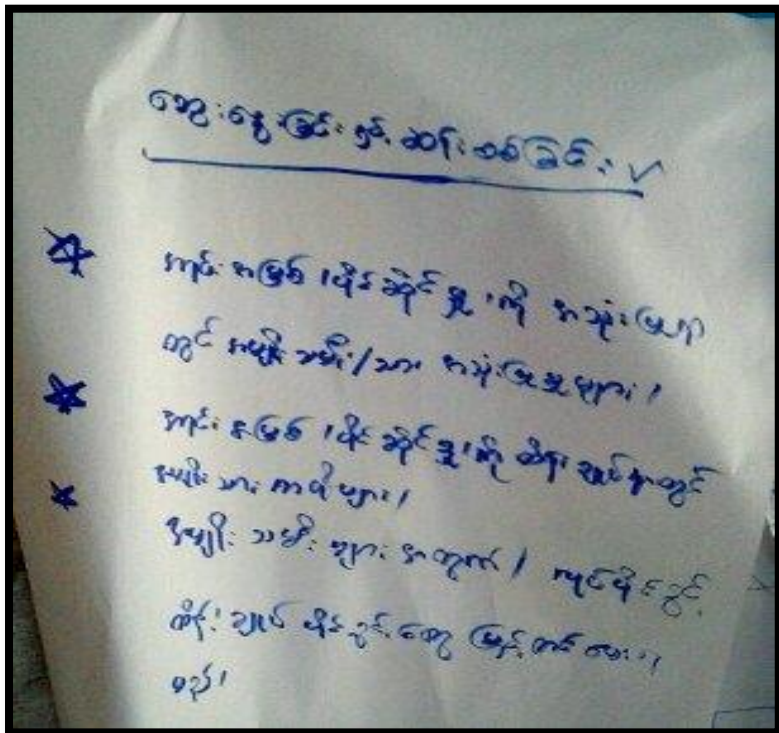 ဆွေးနွေးခြင်းနှင့် ဆန်းစစ်ခြင်း
အရင်းအမြစ် ၊ ပိုင်ဆိုင်မှု ၊ ကို အသုံးပြုရာ
တွင် အမျိုးသမီး/သား အသုံးပြုသူများ ၊
အရင်းအမြစ် ၊ ပိုင်ဆိုင်မှု ၊ ကို ထိန်းချုပ်ရာတွင်
အမျိုးသား ကာယများ ၊
အမျိုးသမီးများ အတွက် ၊ လုပ်ပိုင်ခွင့်
ထိန်းချုပ်ပိုင်ခွင့်တွေ မြှင့်တင်ပေးရ
မည် ၊